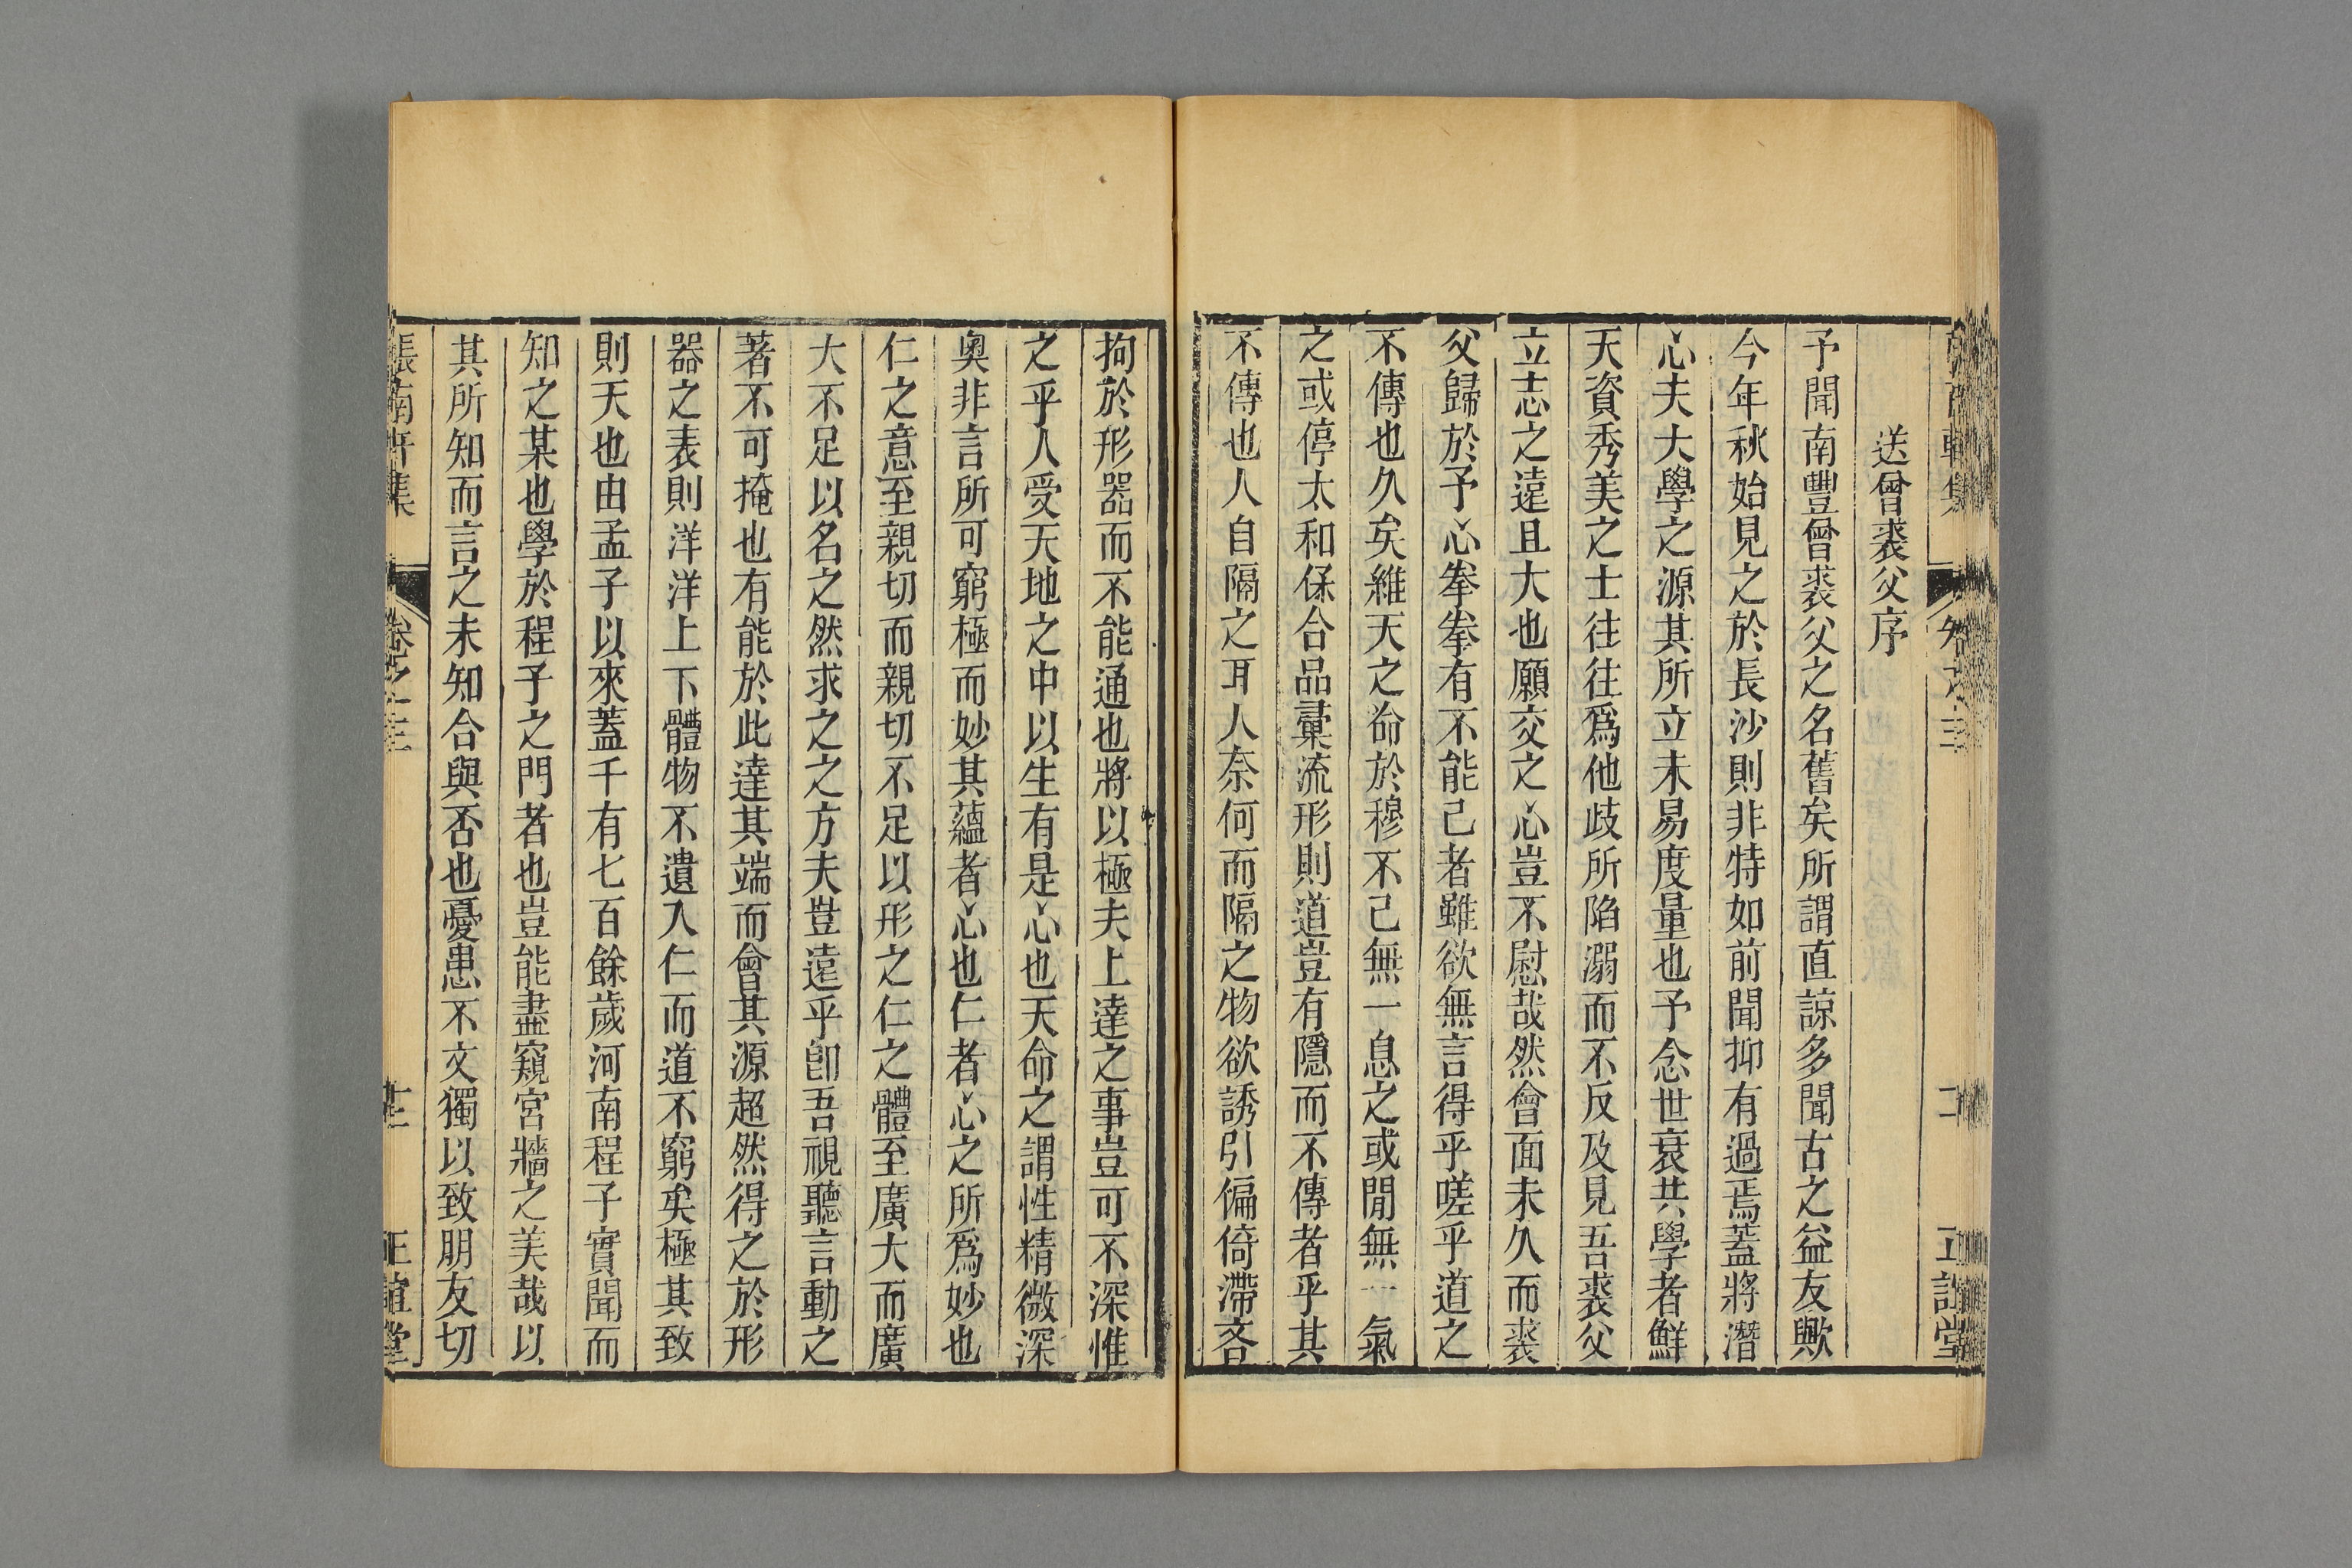 送曾裘父序
予聞南豐曾裘父之名舊矣所謂直諒多聞古之益友歟
今年秋始見之於長沙則非特如前聞抑有過焉蓋將潛
心夫大學之源其所立未易度量也予念世衰共學者鮮
天資秀美之士往往爲他歧所陷溺而不反及見吾裘父
立志之遠且大也願交之心豈不慰哉然會面未久而裘
父歸於予心拳拳有不能已者雖欲無言得乎嗟乎道之
不傳也久矣維天之命於穆不已無一息之或閒無一氣
之或停太和保合品彙流形則道豈有隱而不傳者乎其
不傳也人自隔之耳人奈何而隔之物欲誘引偏倚滯吝
拘於形器而不能通也將以極夫上達之事豈可不深惟
之乎人受天地之中以生有是心也天命之謂性精微深
奧非言所可窮極而妙其蘊者心也仁者心之所爲妙也
仁之意至親切而親切不足以形之仁之體至廣大而廣
大不足以名之然求之之方夫豈遠乎卽吾視聽言動之
著不可掩也有能於此達其端而會其源超然得之於形
器之表則洋洋上下體物不遺人仁而道不窮矣極其致
則天也由孟子以來蓋千有七百餘歲河南程子實聞而
知之某也學於程子之門者也豈能盡窺宮牆之美哉以
其所知而言之未知合與否也憂患不文獨以致朋友切
張南軒集
卷之三
十二
正誼堂